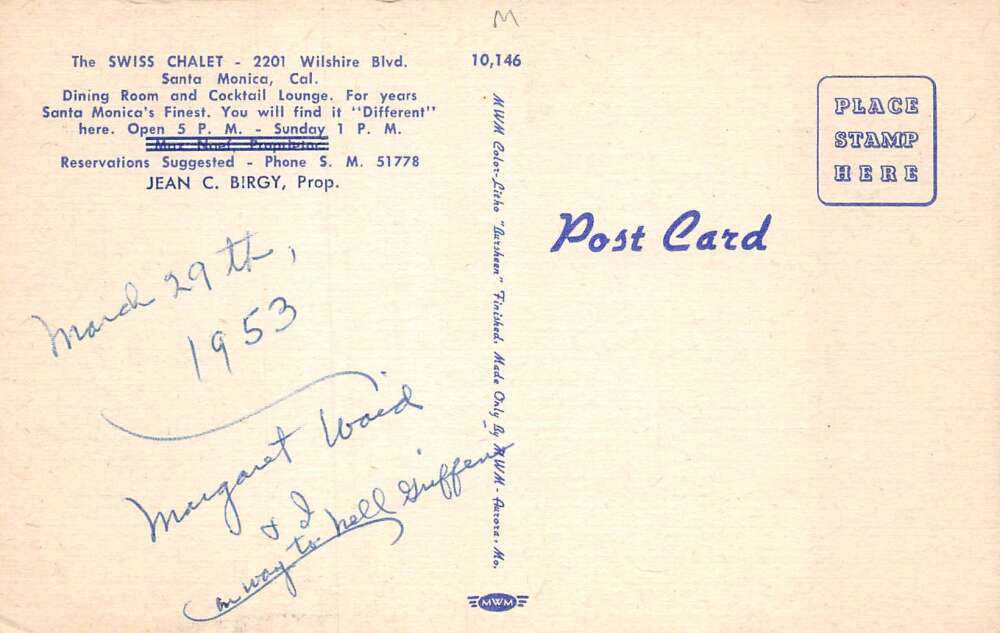 M
The SWISS CHALET - 2201 Wilshire Blvd.
Santa Monica, Cal.
Dining Room and Cocktail Lounge. For years
Santa Monica's Finest. You will find it "Different"
here. Open 5 P. M. - Sunday 1 P. M.
Proprietor
Reservations Suggested - Phone S. M. 51778
JEAN C. BIRGY, Prop.
March 29th,
1953
Margaret Waid
& I
on way to Nell Griffen
10,146
MWM Color-Litho "Aursheen" Finished. Made Only By MWM - Aurora, Mo.
MWM
Post Card
PLACE
STAMP
HERE